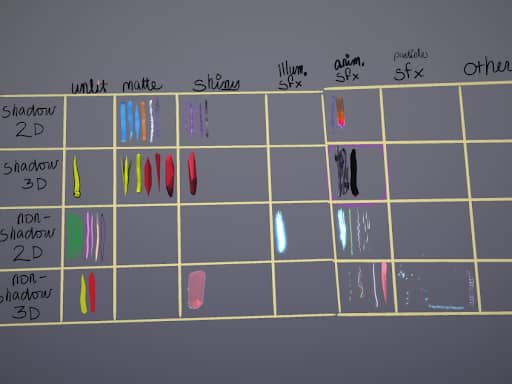 unlit matte shiny illum. sfx anim. sfx particle sfx Other
Shadow
2D
Shadow
3D
non-
Shadow
2D
non-
shadow
3D